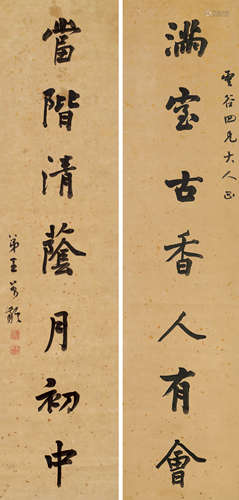 雲谷四兄大人正
满室古香人有會
當階清蔭月初中
弟王